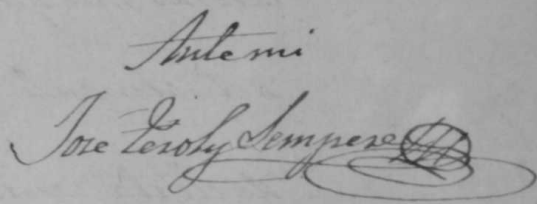 Antemi
Jose Teroly Sempere